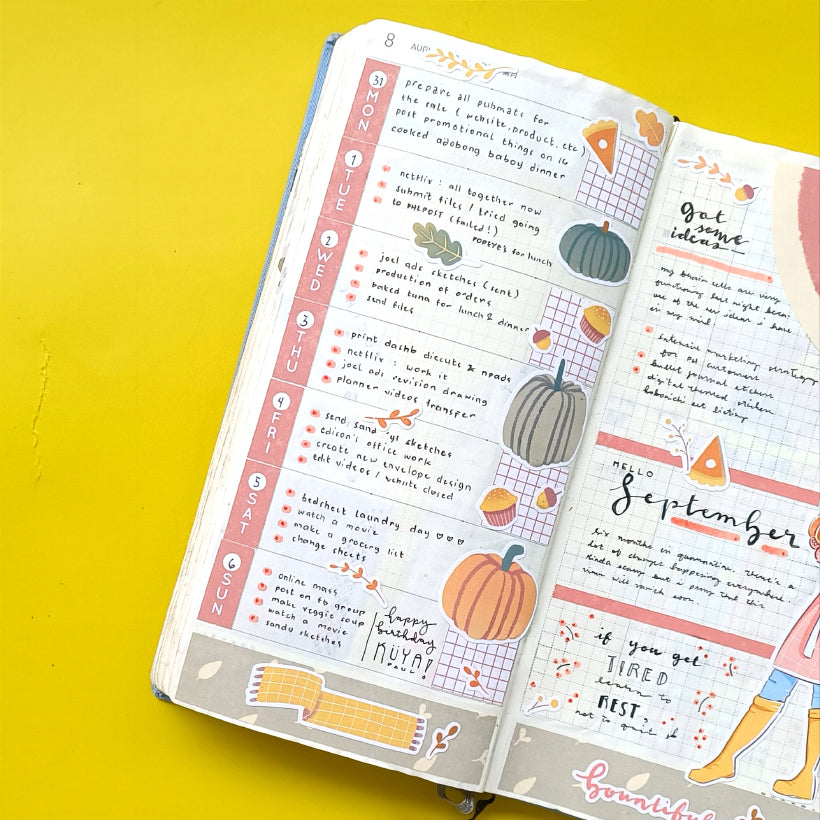 8
31
MON
prepare all pubmats for
the sale ( website, product, etc )
post promotional things on IG
cooked adobong baboy dinner
1
TUE
netflix : all together now
submit files / tried going
to PHLPOST (failed!)
POPEYE's for lunch
2
WED
joel ads sketches (sent)
production of orders
baked tuna for lunch & dinner
send files
3
THU
print dashb diecuts & npads
netflix : work it
joel ads revision drawing
planner videos transfer
4
FRI
send sandy's sketches
edison's office work
create new envelope design
edit videos / website closed
5
SAT
bedsheet laundry day ♡♡♡
watch a movie
make a grocery list
change sheets
6
SUN
online mass
post on fb group
make veggie soup
watch a movie
sandy sketches
happy
birthday
KUYA!
PAUL!
got
some
ideas
my brain cells are very
functioning last night because
of the new ideas i have
in my mind.
extensive marketing strategy
for PH customers
bullet journal stickers
digital themed stickers
hobonichi set listing
HELLO
September
six months in quarantine. there's a
lot of changes happening everywhere.
kinda scary but i pray that this
virus will vanish soon.
if you get
TIRED
learn to
REST,
not to quit
bountiful